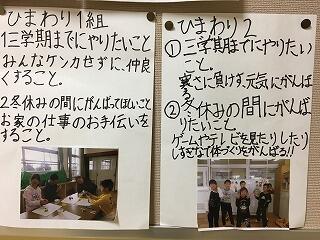 ひまわり1組
1三学期までにやりたいこと
みんなケンカせずに、仲良
くすること。
2.冬休みの間にがんばってほしいこと
お家の仕事のお手伝いを
すること。
ひまわり2
①三学期までにやりたい
こと。
寒さに負けず、元気にがんば
る
②冬休みの間にがんば
りたいこと。
ゲームやテレビを見たりしたり
しすぎないで体づくりをがんばる!!